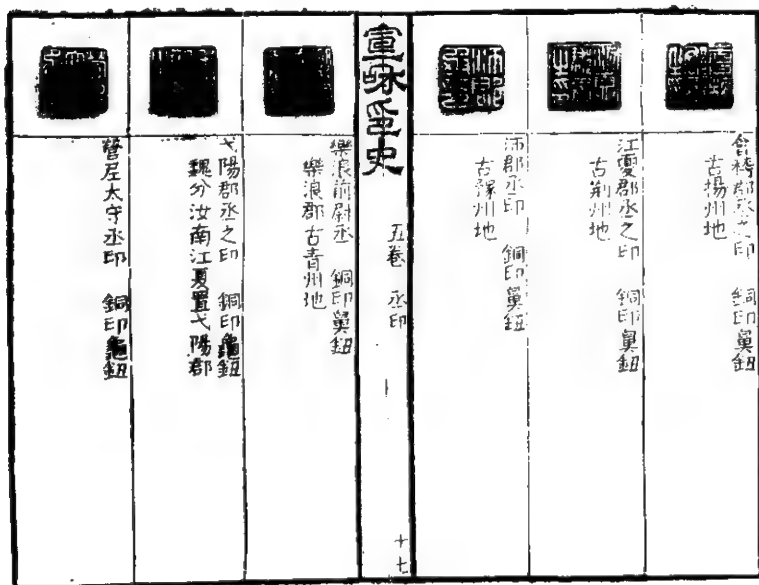 會稽郡丞之印 銅印鼻鈕
古揚州地
江夏郡丞之印 銅印鼻鈕
古荆州地
沛郡丞印 銅印鼻鈕
古豫州地
宣咊印史 五卷 丞印 十七
樂浪前尉丞 銅印鼻鈕
樂浪郡古青州地
弋陽郡丞之印 銅印龜鈕
魏分汝南江夏置弋陽郡
營丘太守丞印 銅印龜鈕